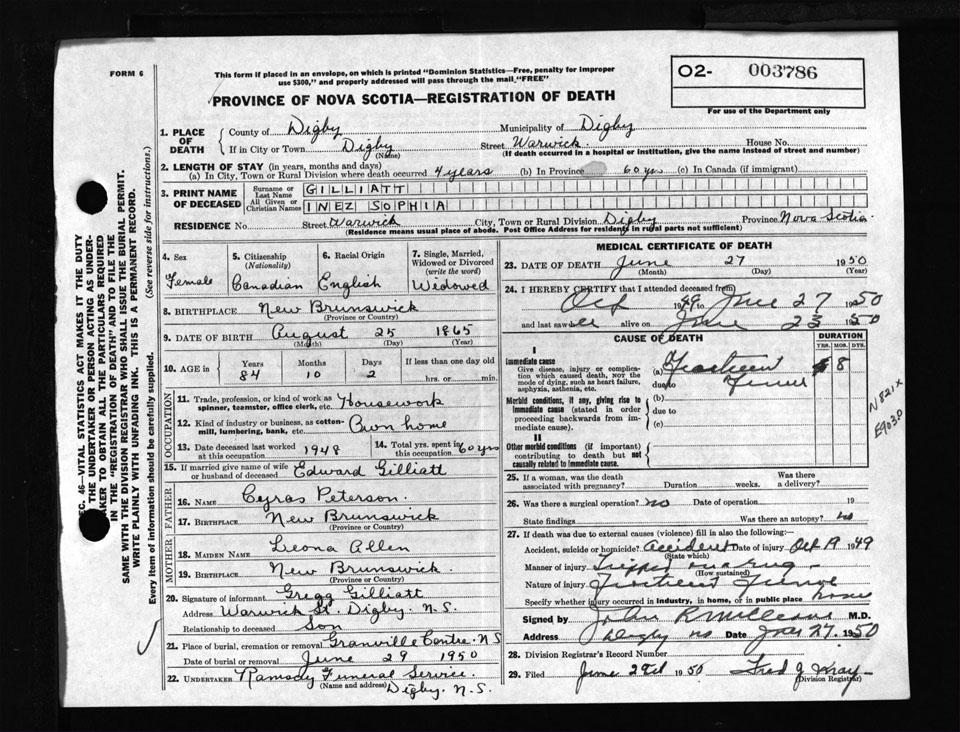 FORM 6
This form if placed in an envelope, on which is printed "Dominion Statistics—Free, penalty for improper
use $300," and properly addressed will pass through the mail "FREE"
O2- 003786
For use of the Department only
PROVINCE OF NOVA SCOTIA—REGISTRATION OF DEATH
1. PLACE OF DEATH
County of Digby Municipality of Digby
If in City or Town Digby Street Warwick House No.
(Name) (If death occurred in a hospital or institution, give the name instead of street and number)
2. LENGTH OF STAY (in years, months and days)
(a) In City, Town or Rural Division where death occurred 4 years (b) In Province 60 yrs (c) In Canada (if immigrant)
3. PRINT NAME OF DECEASED
Surname or Last Name GILLIATT
All Given or Christian Names INEZ SOPHIA
RESIDENCE No. Street Warwick City, Town or Rural Division Digby Province Nova Scotia
(Residence means usual place of abode. Post Office Address for residents in rural parts not sufficient)
4. Sex Female
5. Citizenship (Nationality) Canadian
6. Racial Origin English
7. Single, Married, Widowed or Divorced (write the word) Widowed
8. BIRTHPLACE New Brunswick
(Province or Country)
9. DATE OF BIRTH August 25 1865
(Month) (Day) (Year)
10. AGE in Years 84 Months 10 Days 2 If less than one day old hrs. or min.
OCCUPATION
11. Trade, profession, or kind of work as spinner, teamster, office clerk, etc. Housework
12. Kind of industry or business, as cotton-mill, lumbering, bank, etc. Own home
13. Date deceased last worked at this occupation 1948
14. Total yrs. spent in this occupation 60 yrs
15. If married give name of wife or husband of deceased Edward Gilliatt
FATHER
16. NAME Cyras Peterson.
17. BIRTHPLACE New Brunswick
(Province or Country)
MOTHER
18. MAIDEN NAME Leona Allen
19. BIRTHPLACE New Brunswick.
(Province or Country)
20. Signature of informant Gregg Gilliatt
Address Warwick St. Digby. N.S.
Relationship to deceased Son
21. Place of burial, cremation or removal Granville Centre. N.S
Date of burial or removal June 29 1950
22. UNDERTAKER Ramsay Funeral Service.
(Name and address) Digby. N.S.
MEDICAL CERTIFICATE OF DEATH
23. DATE OF DEATH June 27 1950
(Month) (Day) (Year)
24. I HEREBY CERTIFY that I attended deceased from
Oct 1949 to June 27 1950
and last saw her alive on June 23 1950
CAUSE OF DEATH
DURATION
YRS. MOS. DYS.
I
Immediate cause
Give disease, injury or complication which caused death, NOT the mode of dying, such as heart failure, asphyxia, asthenia, etc.
(a) 8
due to
Morbid conditions, if any, giving rise to immediate cause (stated in order proceeding backwards from immediate cause).
(b)
due to
(c)
II
Other morbid conditions (if important) contributing to death but not causally related to immediate cause.
N821X
E9030
25. If a woman, was the death associated with pregnancy? Duration weeks. Was there a delivery?
26. Was there a surgical operation? no Date of operation 19
State findings Was there an autopsy? no
27. If death was due to external causes (violence) fill in also the following:
Accident, suicide or homicide? Accident Date of injury Oct 19 1949
(State which)
Manner of injury Tripped on a rug
(How sustained)
Nature of injury
Specify whether injury occurred in industry, in home, or in public place home
Signed by M.D.
Address Digby NS Date 27. 1950
28. Division Registrar's Record Number
29. Filed June 1950 Fred J Wray
(Division Registrar)
SEC. 46—VITAL STATISTICS ACT MAKES IT THE DUTY
OF THE UNDERTAKER OR PERSON ACTING AS UNDER-
TAKER TO OBTAIN ALL THE PARTICULARS REQUIRED
IN THE "REGISTRATION OF DEATH" AND TO FILE THE
SAME WITH THE DIVISION REGISTRAR WHO SHALL ISSUE THE BURIAL PERMIT.
WRITE PLAINLY WITH UNFADING INK. THIS IS A PERMANENT RECORD.
Every item of information should be carefully supplied. (See reverse side for instructions.)